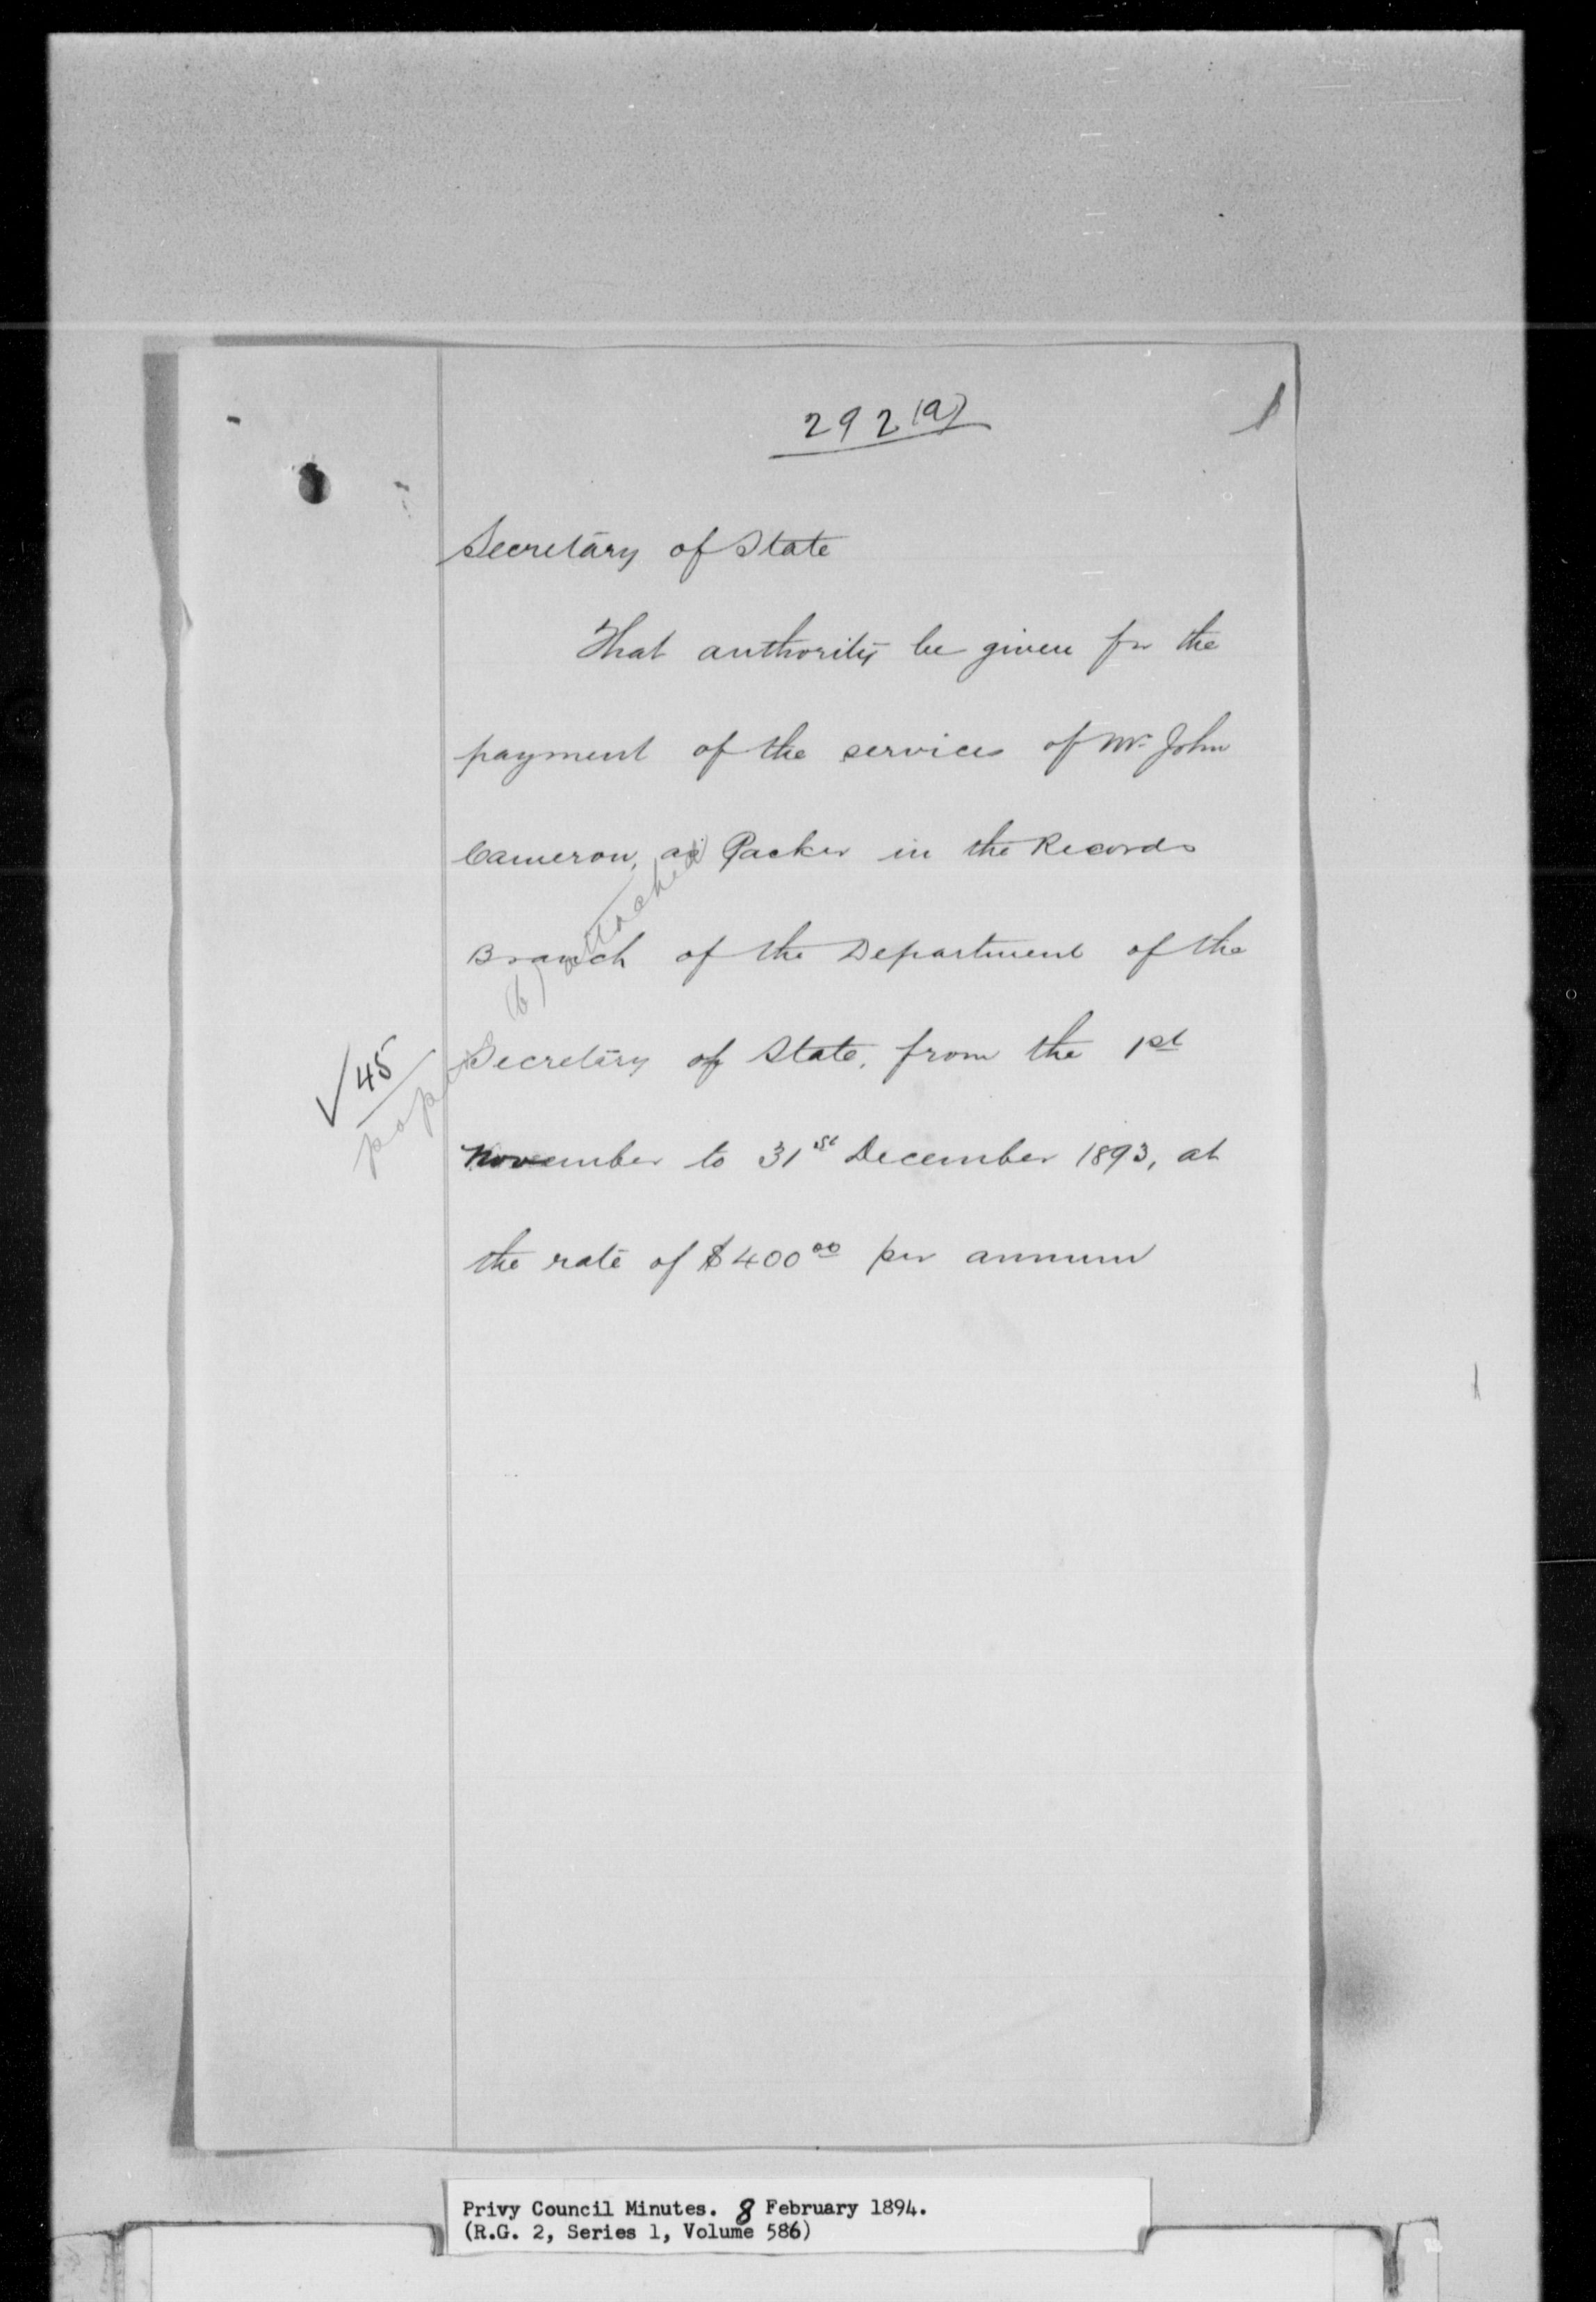 292 (a)
Secretary of State
That authority be given for the
payment of the services of Mr John
Cameron, as Packer in the Records
Branch of the Department of the
Secretary of State, from the 1st
November to 31st December 1893, at
the rate of $400 00 per annum
45
papers (b) attached
Privy Council Minutes. 8 February 1894.
(R.G. 2, Series 1, Volume 586)